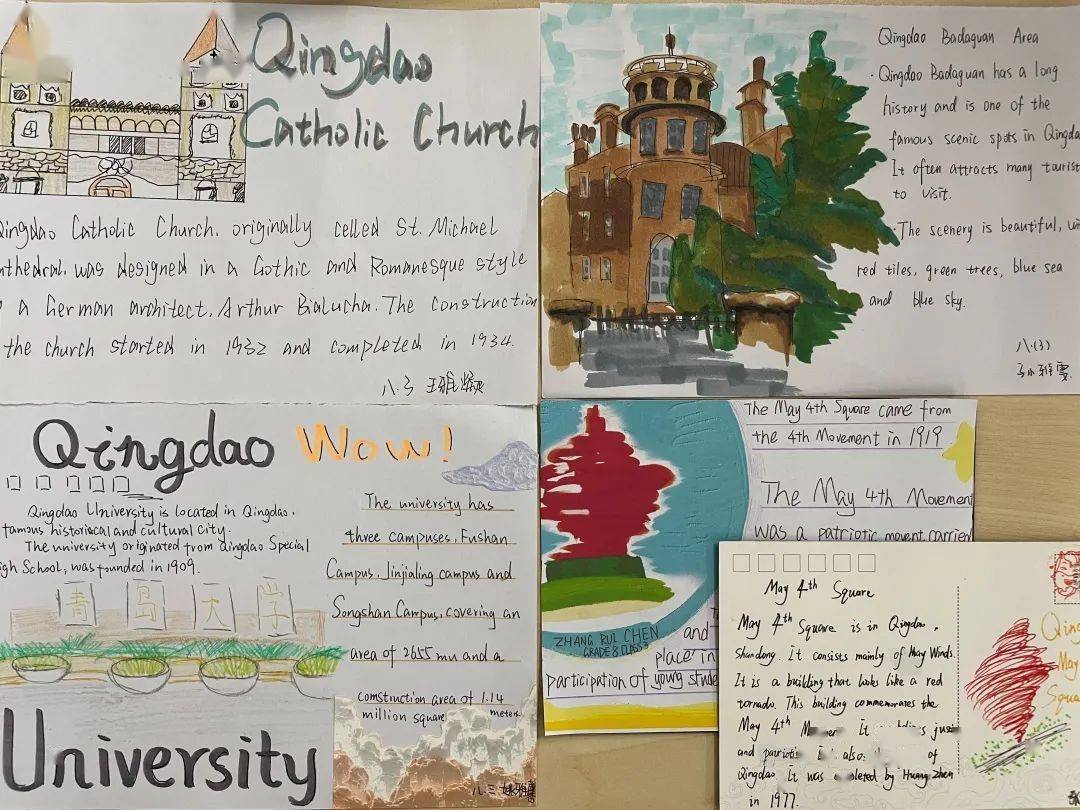 Qingdao
Catholic Church
Qingdao Catholic Church, originally celled St. Michael
was designed in a Gothic and Romanesque style
a German architect, Arthur Bialucha. The construction
the church started in 1932 and completed in 1934.
八.3
Qingdao Badaguan Area
Qingdao Badaguan has a long
history and is one of the
famous scenic spots in
It often attracts many
to visit.
The scenery is beautiful,
red tiles, green trees, blue sea
and blue sky.
八.(3)
Qingdao Wow!
Qingdao University is located in Qingdao,
famous historiacal and cultural city.
The university originated from Qingdao Special
School, was founded in 1909.
青 島 大 学
University
The university has
three campuses, Fushan
Campus, Jinjialing campus and
Songshan Campus, covering an
area of 2655 mu and a
construction area of 1.14
million square meters
八.三
The May 4th Square came from
the 4th Movement in 1919
The May 4th Movement
was a patriotic movent carried
and
place in
participation of young
ZHANG RUI CHEN
GRADE 8 CLASS 3
May 4th Square
May 4th Square is in Qingdao,
Shandong. It consists mainly of May Winds.
It is a building that looks like a red
tornado. This building commemorates the
May 4th
and
also of
Qingdao. It was by Huang Zhen
in 1977.
May